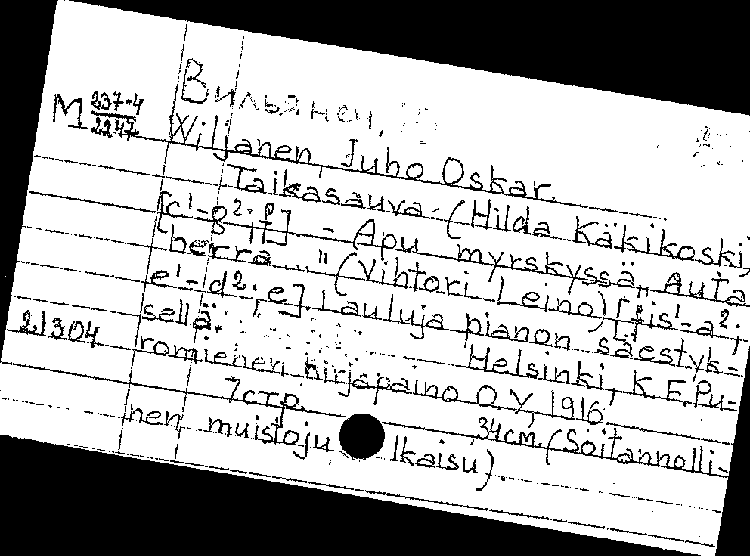 M 237-4 / 2247
Вильянен, Ю
Wiljanen, Juho Oskar.
Taikasauva. (Hilda Käkikoski,
[c'-g²; f] – Apu myrskyssä „Auta
herra..." (Vihtori Leino) [fis'-a²;
e'-d²; e]. Lauluja pianon säestyk-
sellä. Helsinki, K.E.Pu-
21304 romiehen kirjapaino O.Y, 1916.
7 стр. 34 cm. (Soitannolli-
nen muistojulkaisu).